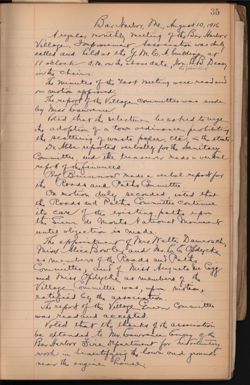 35
Bar Harbor, Me., August 10, 1916
A regular monthly meeting of the Bar Harbor
Village Improvement Association was duly
called and held at the Y.M.C.A. building at
11 o'clock A.M. on the above date, Mr. Deasy
in the chair.
The minutes of the last meeting were read and
on motion approved.
The report of the Village Committee was made
by Mrs.
Voted that the selectmen be asked to urge
the adoption of a town ordinance prohibiting
the scattering of waste paper, etc. in the streets
Dr. reported verbally for the Sanitary
Committee, and the Treasurer made a verbal
report of the finances.
Prof. Grimmons made a verbal report for
the Roads and Paths Committee.
On motion duly seconded, voted that
the Roads and Paths Committee continue
its care of the existing paths upon
the Sieur de Monts National Monument
until objection is made.
The appointment of Mrs. Walter Damrosch,
Miss and Mr.
as members of the Roads and Paths
Committee, and of Miss
and Miss as members of the
Village Committee was, upon motion,
ratified by the association.
The report of the Village Committee
was read and accepted.
Voted that the thanks of the association
be extended to the
Bar Harbor Fire Department for
work in beautifying the town and grounds
near the engine house.